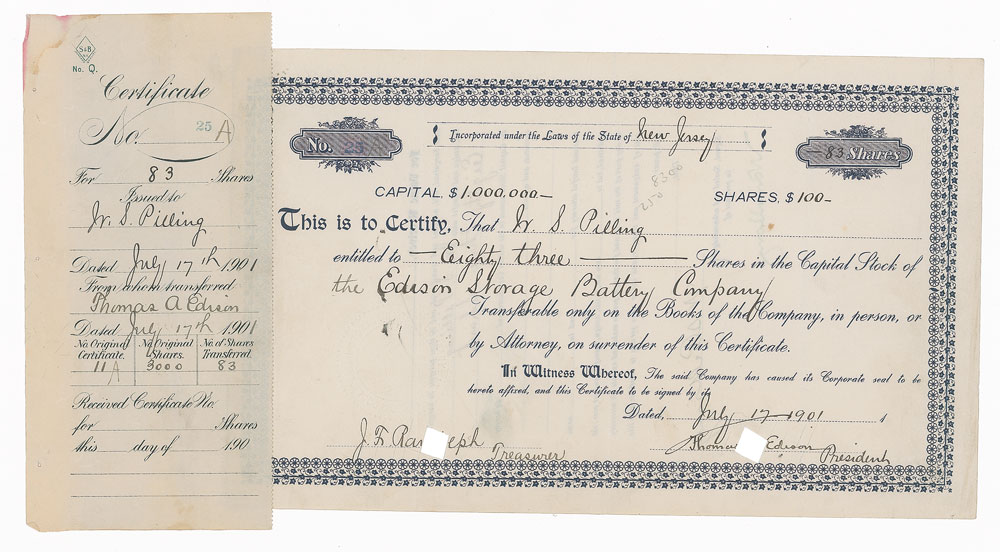 S&B
No. Q.
Certificate
No. 25 A
For 83 Shares
Issued to
W. S. Pilling
Dated July 17th 1901
From whom transferred
Thomas A Edison
Dated July 17th 1901
No. Original Certificate. No. Original Shares. No. of Shares Transferred.
11 A 3000 83
Received Certificate No.
for Shares
this day of 190
No. 25
Incorporated under the Laws of the State of New Jersey
83 Shares
CAPITAL, $1,000,000
SHARES, $100
This is to Certify, That W. S. Pilling
entitled to Eighty three Shares in the Capital Stock of
the Edison Storage Battery Company
Transferable only on the Books of the Company, in person, or
by Attorney, on surrender of this Certificate.
In Witness Whereof, The said Company has caused its Corporate seal to be
hereto affixed, and this Certificate to be signed by its
Dated, July 17 1901 1
J. F. Ran eph
Treasurer
Thoma Edison
President